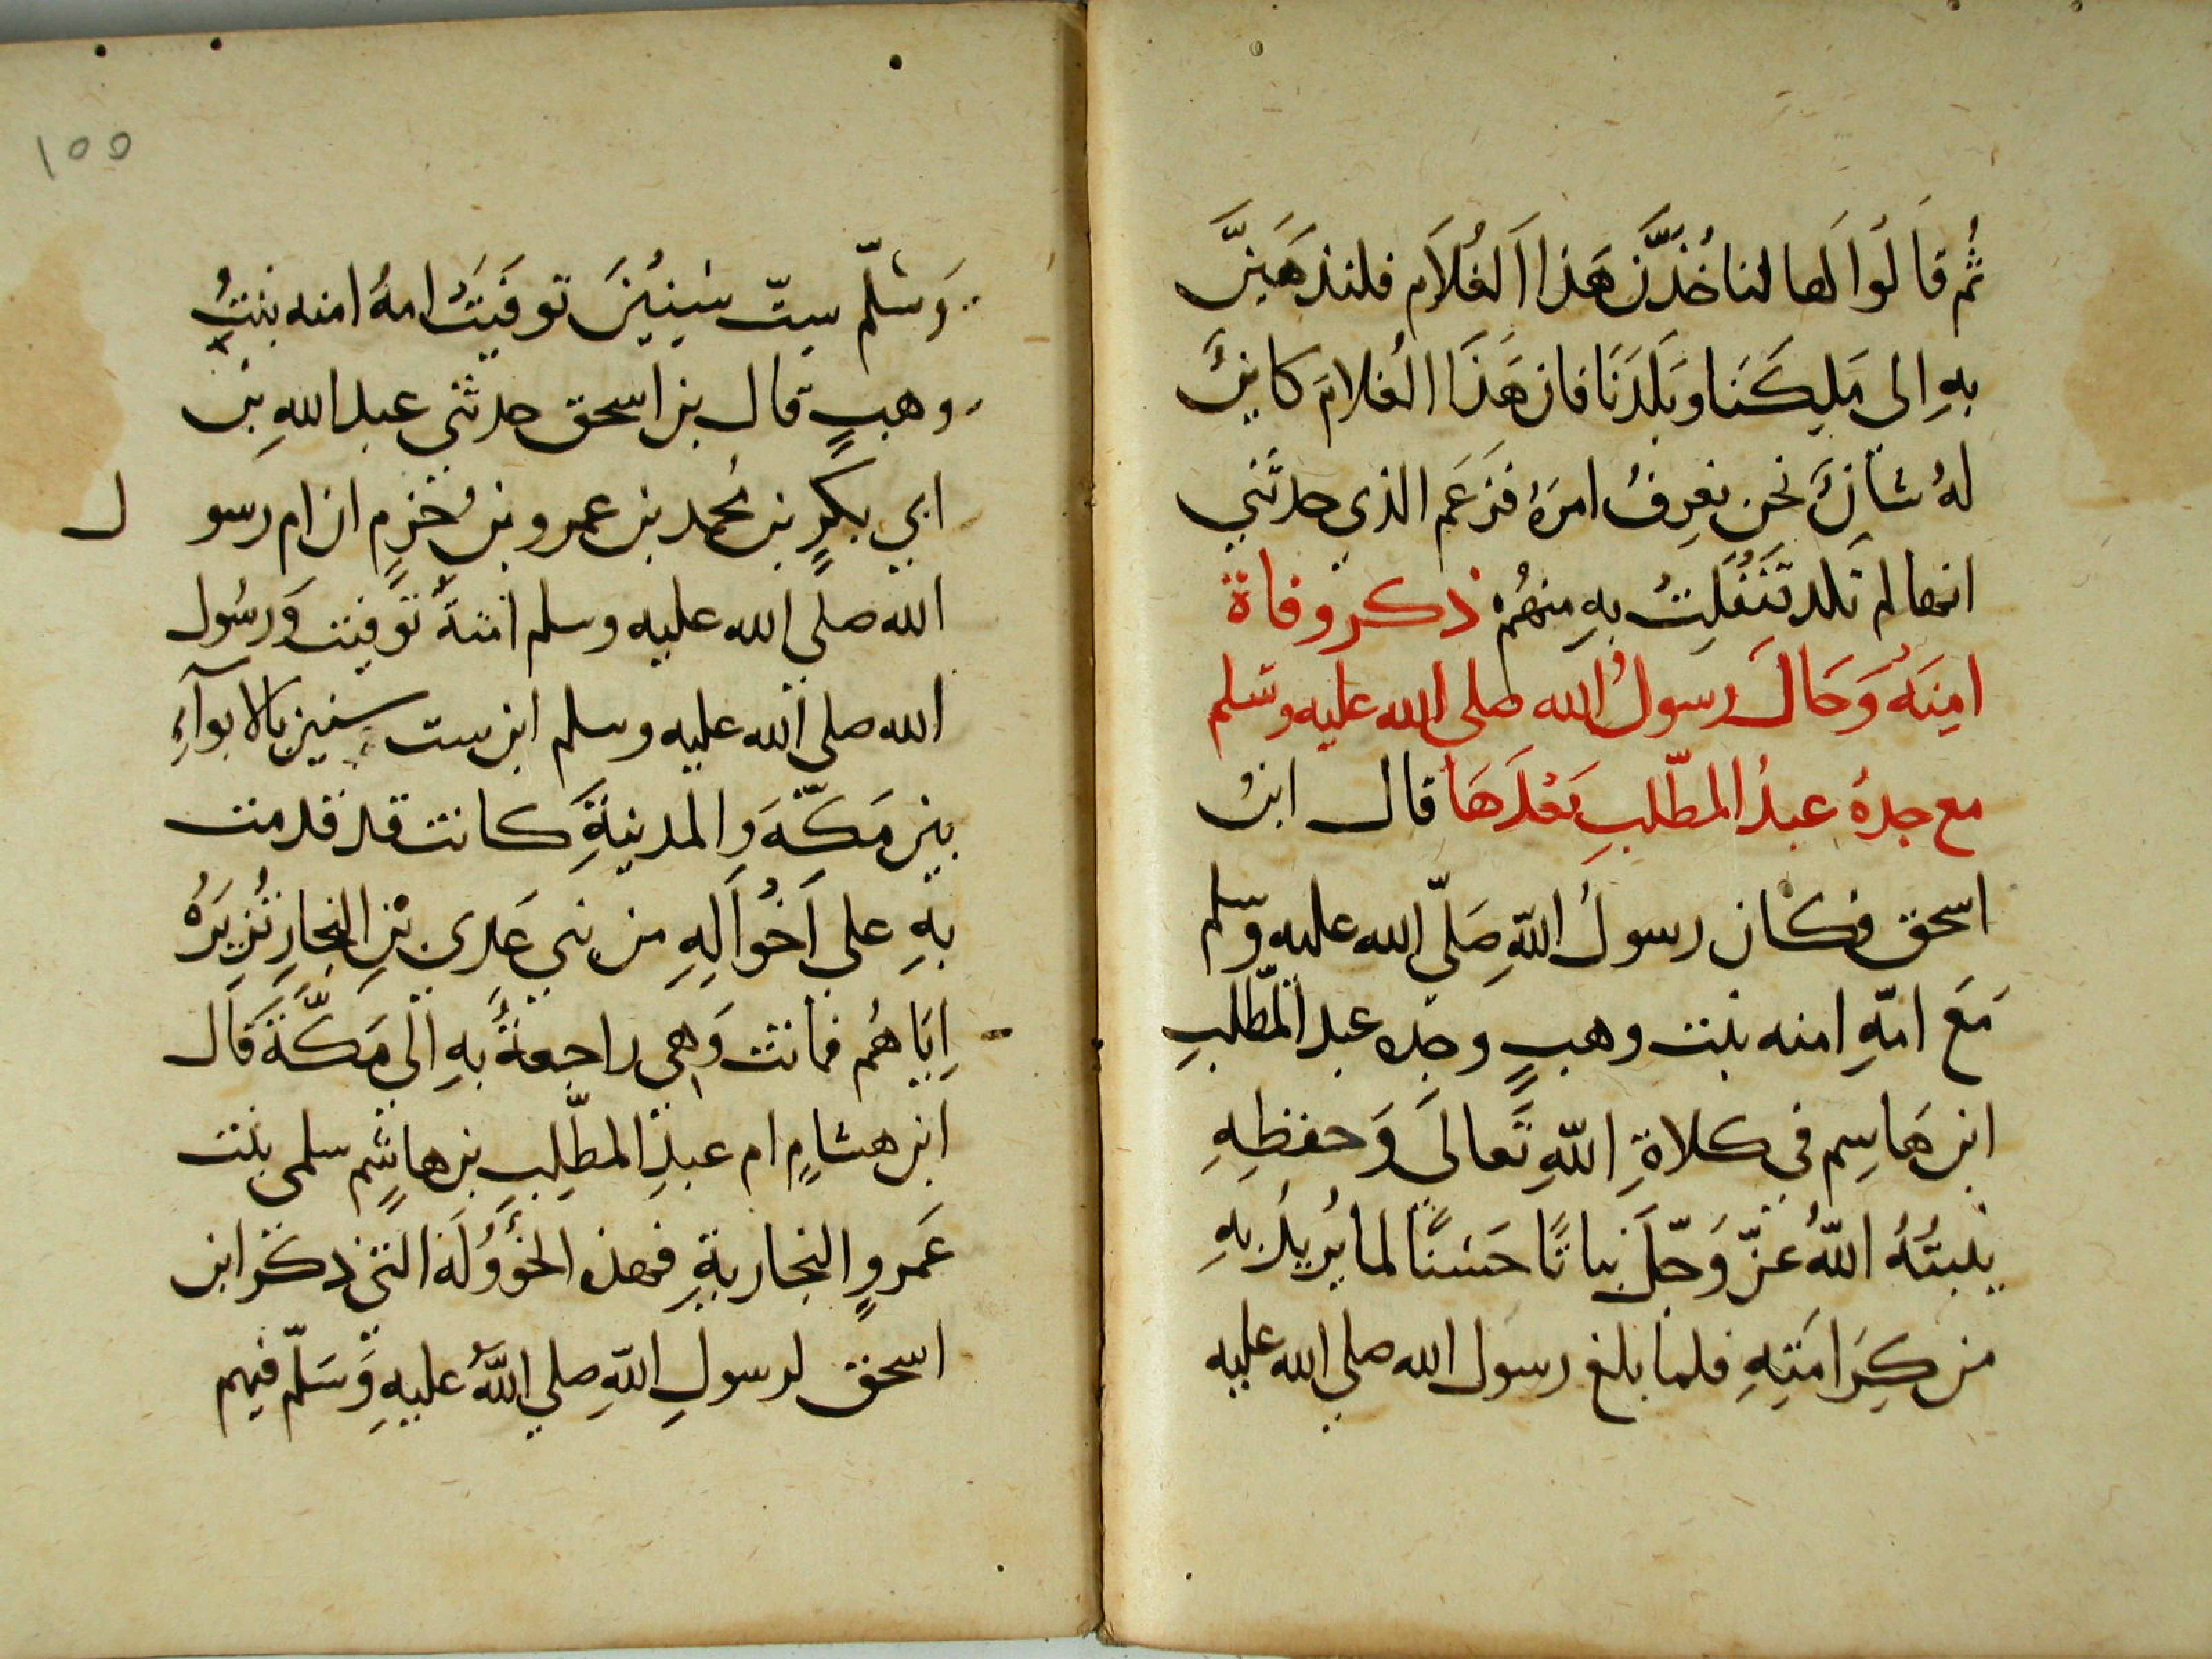 ثُم قَالُوا لَها لنا خُذَنَّ هَذا الغُلاَم فلنذهَبَنَّ
بهِ الى مَلِيكَنا وبَلَدَنَا فان هَذَا الغلامَ كاينٌ
لهُ شانٌ نحن نعرِفُ امرَهُ فزَعَم الذي حدثَني
انها لم تكد تَنْفُلِتُ بهِ منهُم ذكر وفاة
امِنَةَ وَحَال رسول الله صلى الله عليه وسَلم
مع جدهُ عبدُ المطّلبِ بَعْدَهَا قال ابنُ
اسحق فكان رسولُ اللّهِ صَلّى الله عليه وسّلم
مَعَ امّهِ امنه بنت وهبٍ وجده عبد المطّلبِ
ابن هَاسِم في كلاةِ اللّهِ تَعالى وَحفظِهِ
ينبتُهُ اللّهُ عزّ وَجّل نباتًا حَسَنًا لما يُريدُ بهِ
من كِرَامَتِهِ فلما بلغ رسول الله صلي الله عليه
وَسَلّم سِتّ سِنِينَ توفيَت امهُ امنه بنتُ
وهبٍ قال بن اسحق حدثني عبد اللهِ بن
ابي بكرٍ بن محمد بن عمرو بن خزمٍ ان ام رسول
الله صلي الله عليه وسلم امنةَ توفيت وَرسُول
الله صلي الله عليه وسلم ابن ست سنين بالابوآءِ
بين مَكّةَ والمدينةِ كانت قد قدمت
بهِ علي اَخُوَالِهِ من بني عَدي بنِ النجارِ تُزيرُهُ
اِيَاهُم فماتت وَهي راجعةٌ بهِ الي مَكّةَ قَال
ابن هشامٍ ام عبدِ المطّلِبِ بن هاشمٍ سلمى بنت
عَمروٍ النجاريةِ فهذه الخُؤُولَة التي ذكر ابن
اسحق لرسولِ اللّهِ صلي اللّهُ عليهِ وَسَلّم فيهم
١٥٥